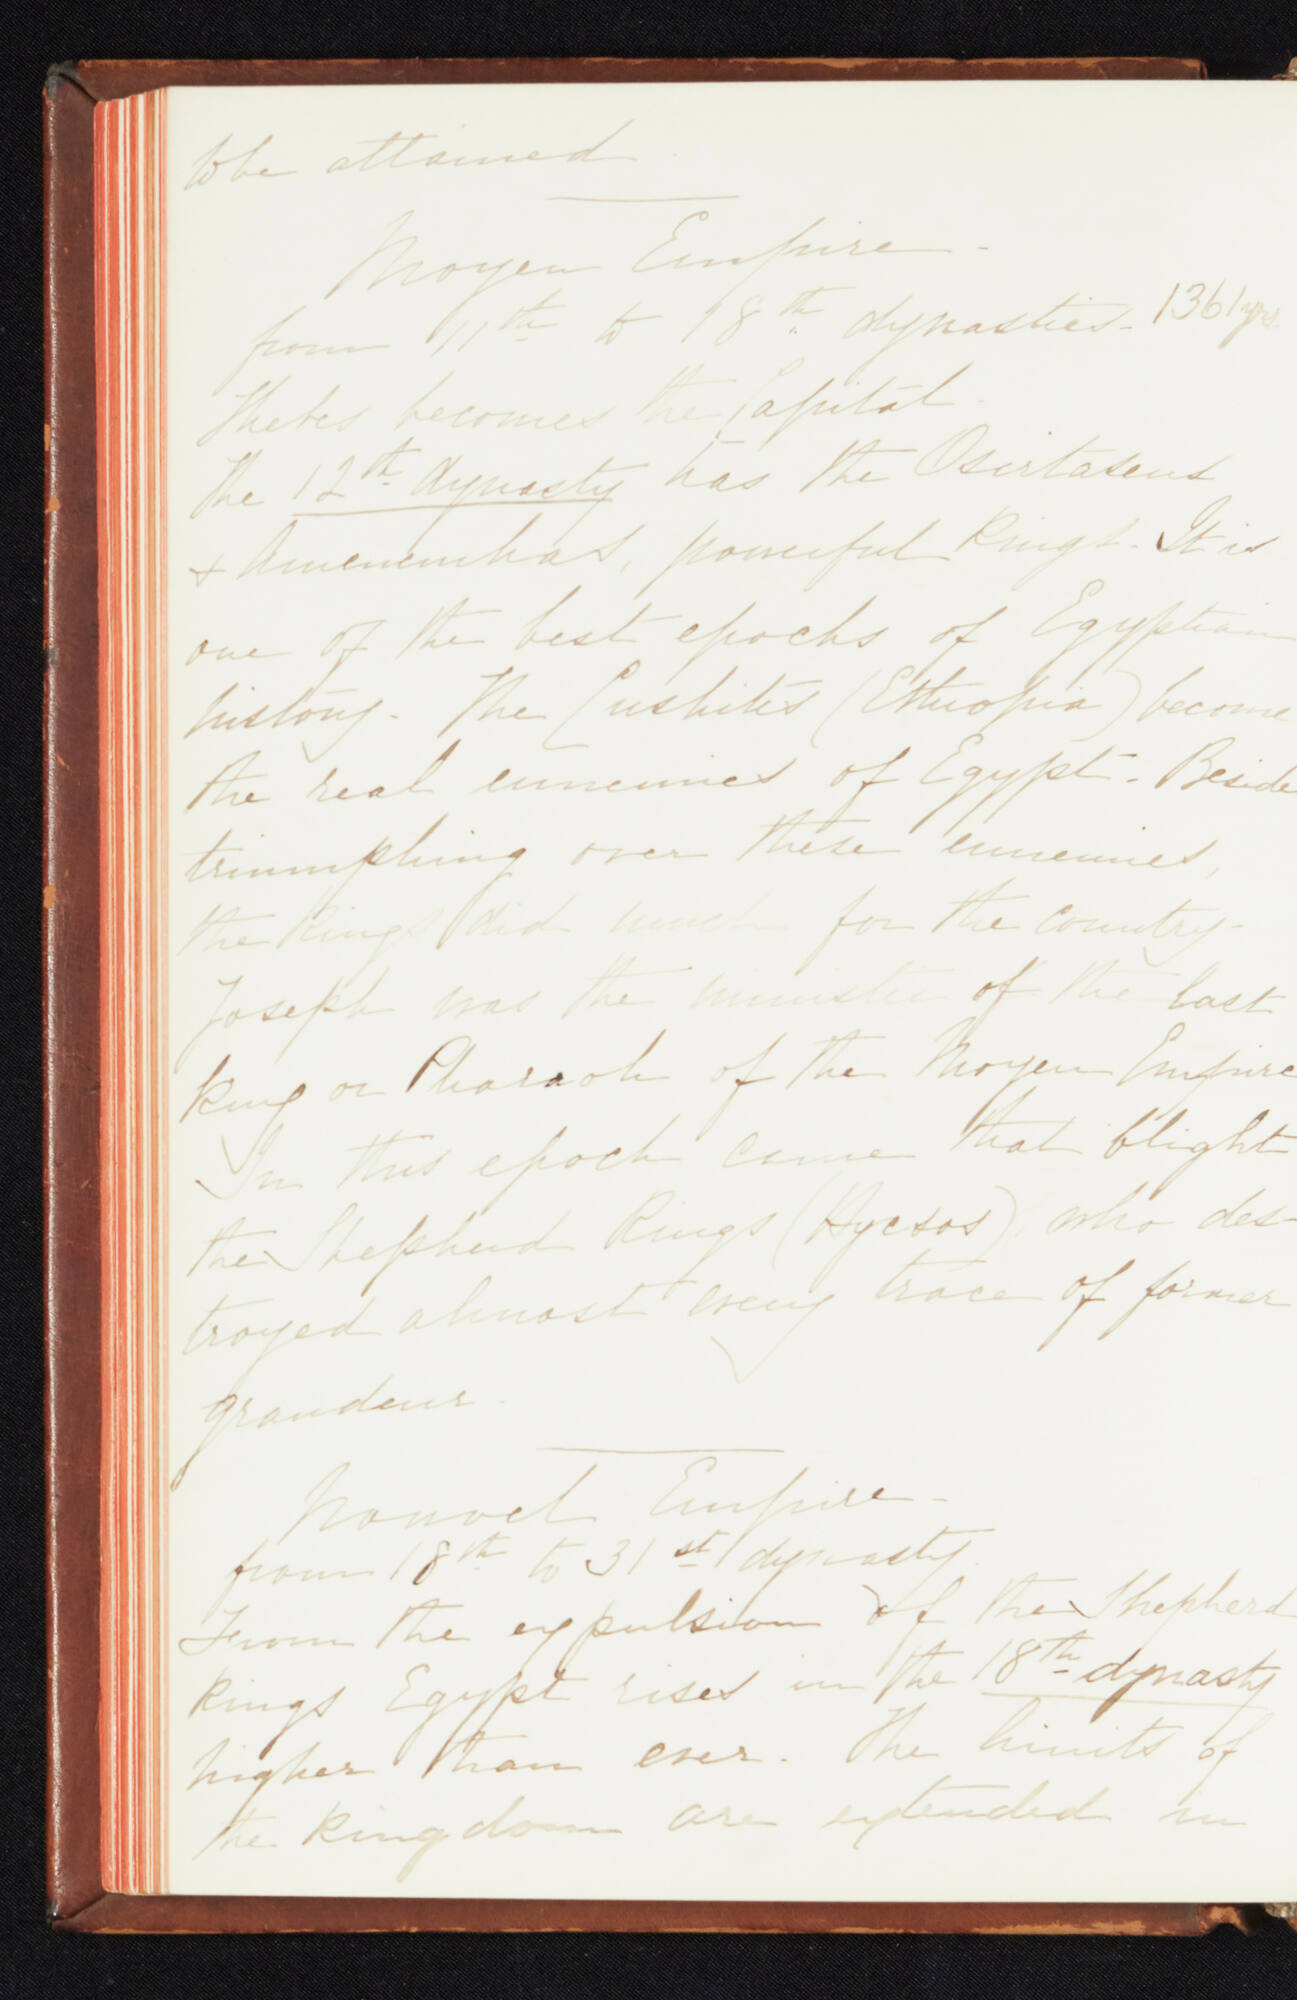 to be attained.
Moyen Empire -
from 11th to 18th dynasties - 1361 yrs.
Thebes becomes the Capital.
The 12th dynasty has the Osirtasens
+ Amenemhas, powerful Kings. It is
one of the best epochs of Egyptian
history. The Cushites (Ethiopia) become
the real ennemies of Egypt. Beside
triumphing over these ennemies,
the Kings did much for the country.
Joseph was the minister of the last
King or Pharaoh of the Moyen Empire
In this epoch came that blight
the Shepherd Kings (Hycsos) who des-
troyed almost every trace of former
grandeur.
Nouvel Empire -
from 18th to 31st dynasty.
From the expulsion of the Shepherd
Kings Egypt rises in the 18th dynasty
higher than ever. The limits of
the Kingdom are extended in